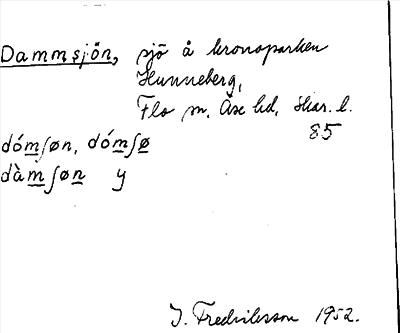 Dammsjön, sjö å kronoparken
Hunneberg,
Flo sn. Åse hd. Skar. l.
85
dómʃøn, dómʃø
dàmʃøn y
I. Fredriksson 1952.